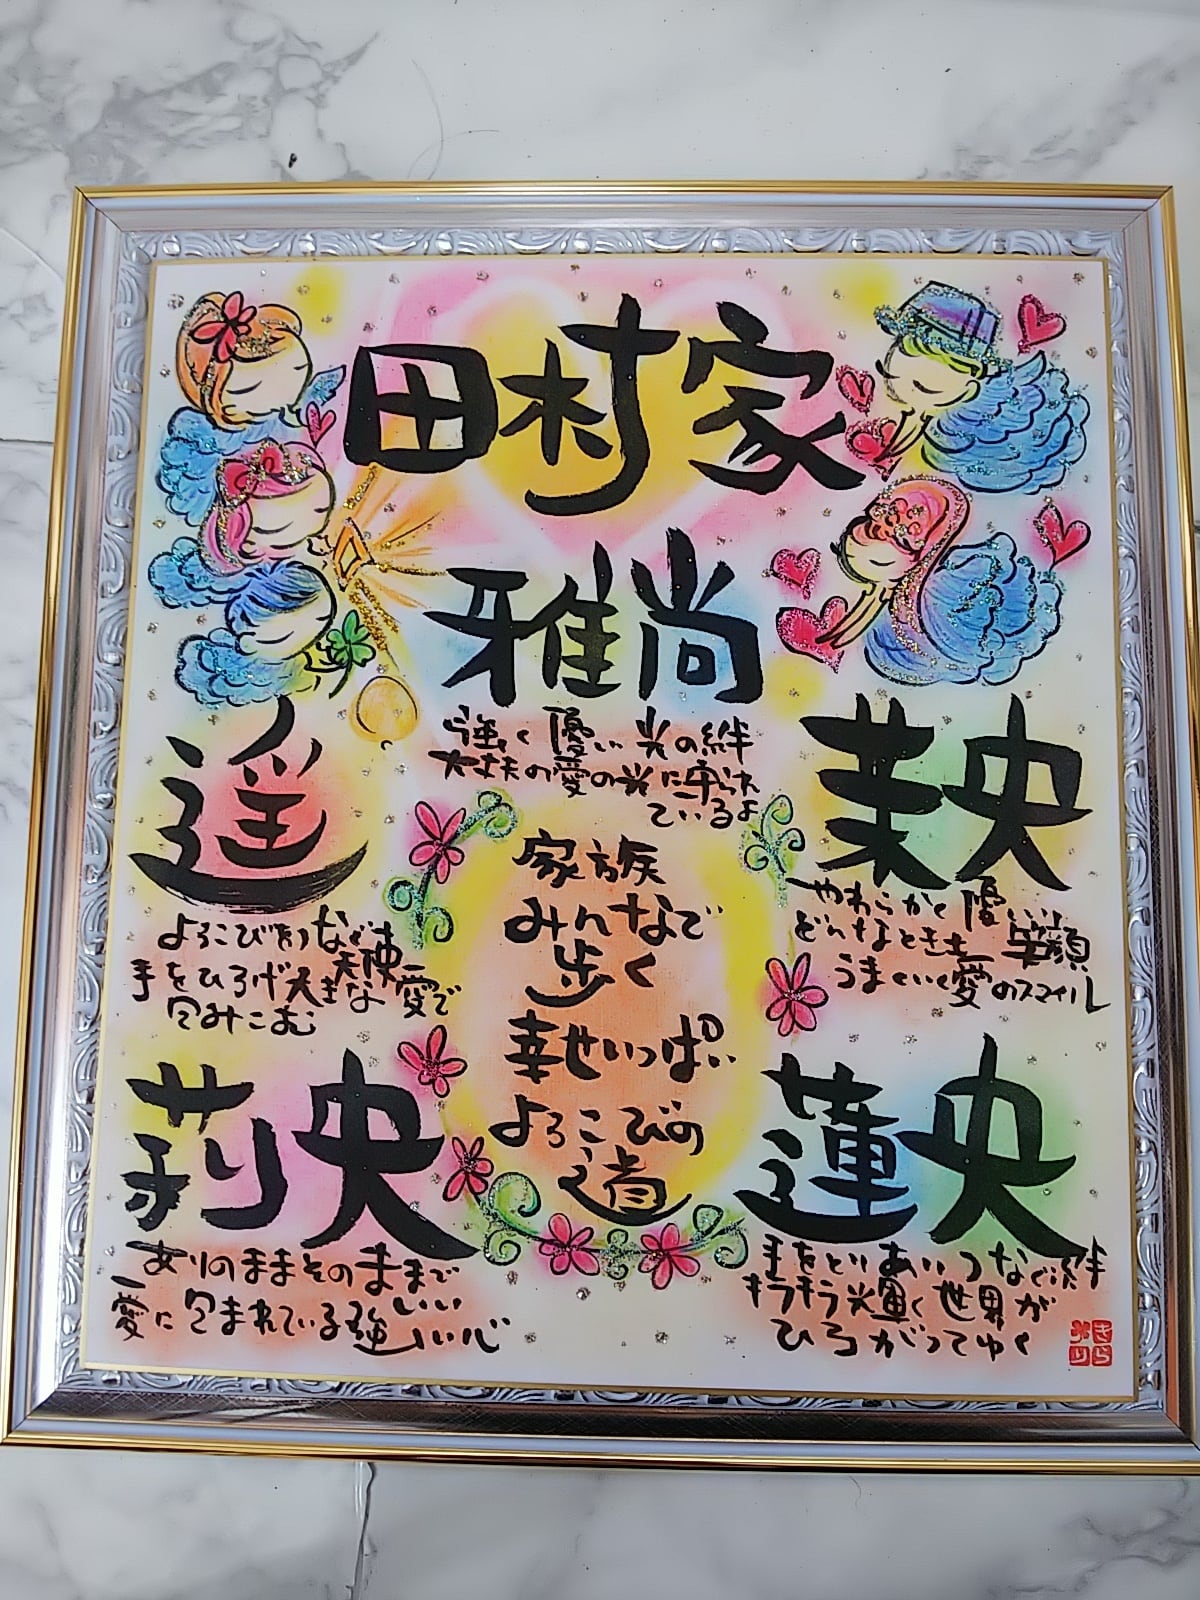 田村家
雅尚
強く優しい光の絆
大丈夫の愛の光に守られ
ているよ
茉央
やわらかく優しい
どんなときも笑顔
うまくいく愛のスマイル
遥
よろこびをつなぐ天使
手をひろげ大きな愛で
包みこむ
家族
みんなで
歩く
幸せいっぱい
よろこびの
道
莉央
ありのままそのままで
愛に包まれている強い心
蓮央
手をとりあいつなぐ絆
キラキラ輝く世界が
ひろがってゆく